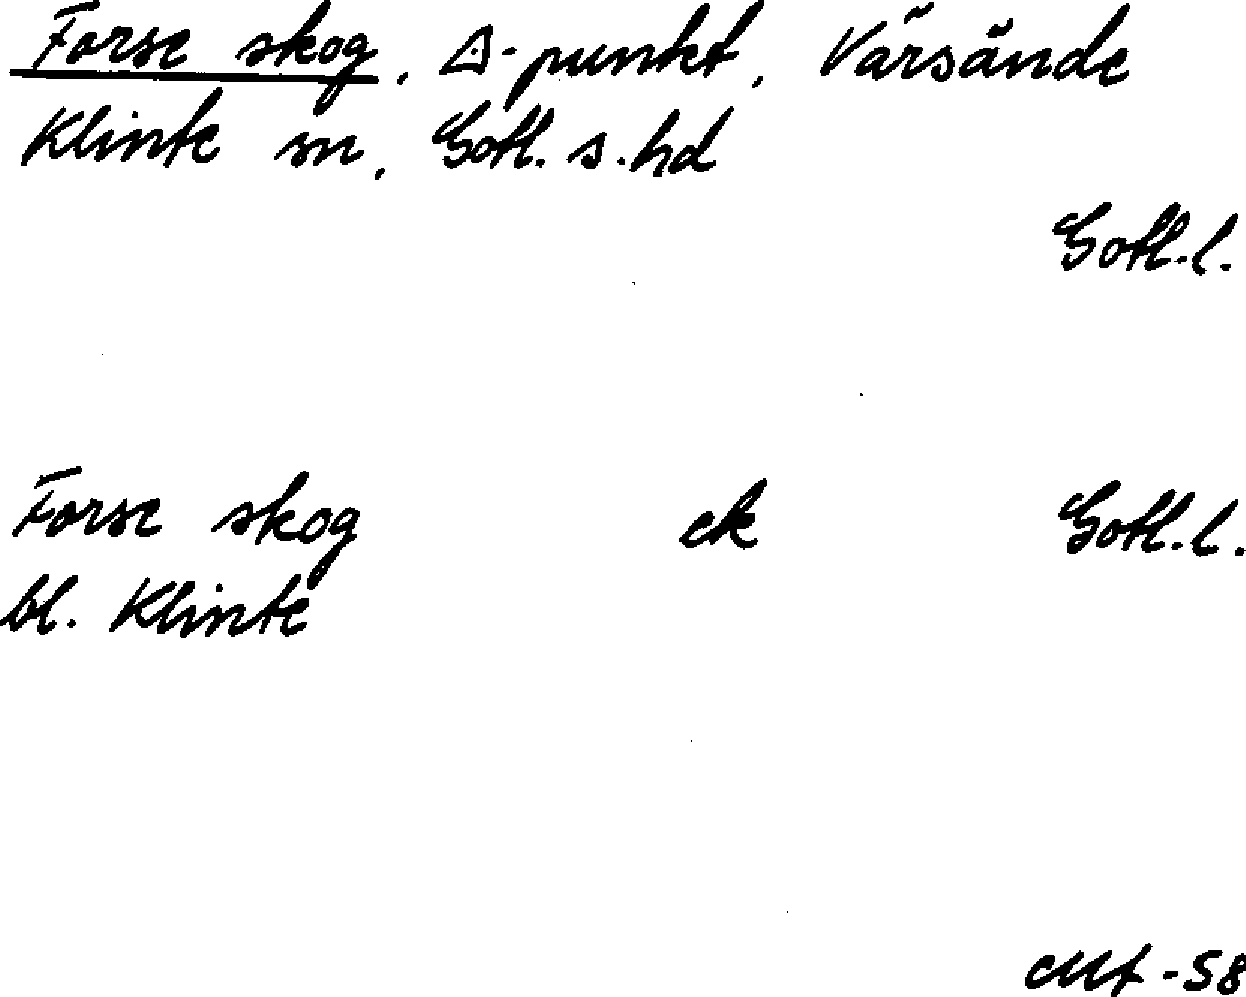 Forse skog, ⟁-punkt, Värsände
Klinte sn, Gotl. s. hd
Gotl. l.
Forse skog ek Gotl. l.
bl. Klinte
-58